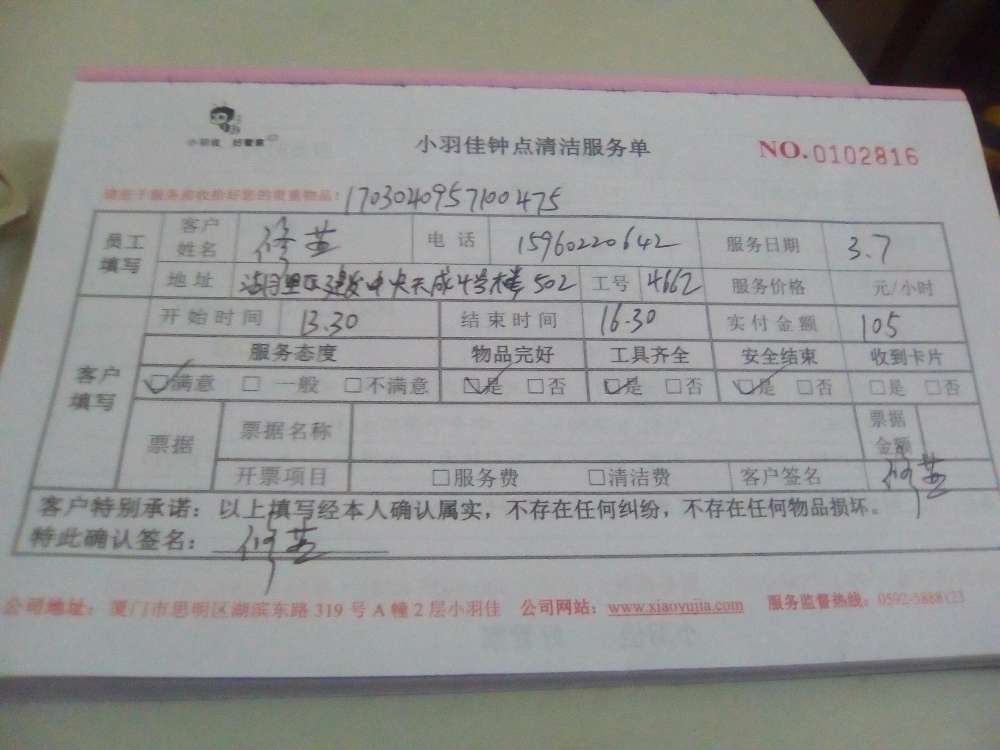 小羽佳 好管家
小羽佳钟点清洁服务单
NO.0102816
请您于服务前收拾好您的贵重物品！ 1703040957100475
员工填写 客户姓名 修 电话 15960220642 服务日期 3.7
地址 湖里区建发中央天成4号楼502 工号 4662 服务价格 元/小时
客户填写 开始时间 13.30 结束时间 16.30 实付金额 105
服务态度 物品完好 工具齐全 安全结束 收到卡片
☑满意 □一般 □不满意 ☑是 □否 ☑是 □否 ☑是 □否 □是 □否
票据 票据名称 票据金额
开票项目 □服务费 □清洁费 客户签名 修
客户特别承诺：以上填写经本人确认属实，不存在任何纠纷，不存在任何物品损坏。
特此确认签名： 修
公司地址：厦门市思明区湖滨东路 319 号 A 幢 2 层小羽佳 公司网站：www.xiaoyujia.com 服务监督热线：0592-5888123